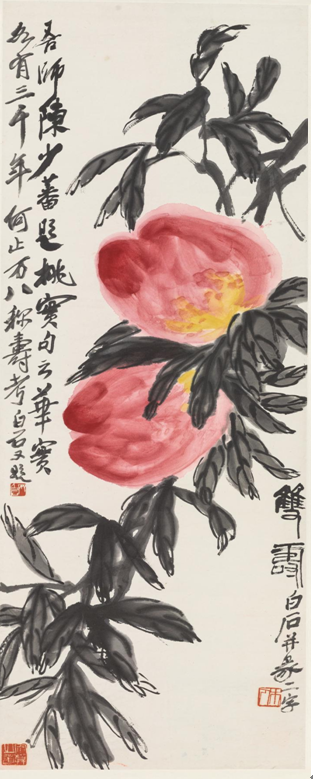 雙壽
白石并篆二字
吾師陳少蕃題桃實句云華實
各有三千年何止万八称壽考白石又題